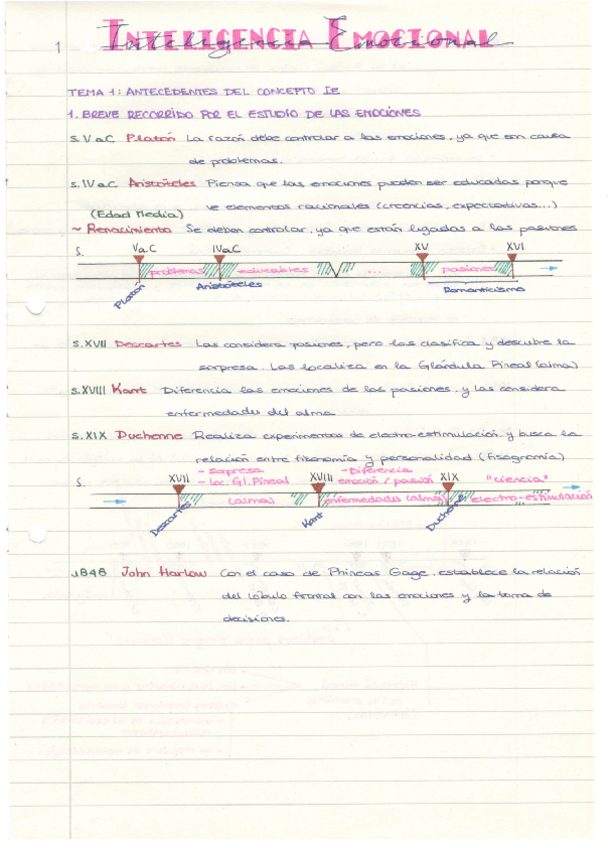 1
INTELIGENCIA EMOCIONAL
TEMA 1: ANTECEDENTES DEL CONCEPTO IE
1. BREVE RECORRIDO POR EL ESTUDIO DE LAS EMOCIONES
S. V a.C Platón La razón debe controlar a las emociones, ya que son causa
de problemas.
S. IV a.C Aristóteles Piensa que las emociones pueden ser educadas porque
ve elementos racionales (creencias, expectativas...)
(Edad Media)
~ Renacimiento Se deben controlar, ya que están ligadas a las pasiones
S. V a.C IV a.C XV XVI
problemas educables ... pasiones
Platón Aristóteles Romanticismo
S. XVII Descartes Las considera pasiones, pero las clasifica y descubre la
sorpresa. Las localiza en la Glándula Pineal (alma)
S. XVIII Kant Diferencia las emociones de las pasiones, y las considera
enfermedades del alma
S. XIX Duchenne Realiza experimentos de electro-estimulación y busca la
relación entre fisonomía y personalidad (fisogromía)
S. XVII - Sorpresa XVIII - Diferencia XIX "ciencia"
- Loc. Gl. Pineal emoción / pasión
(alma) enfermedades (alma) electro-estimulación
Descartes Kant Duchenne
1848 John Harlow Con el caso de Phineas Gage, establece la relación
del lóbulo frontal con las emociones y la toma de
decisiones.